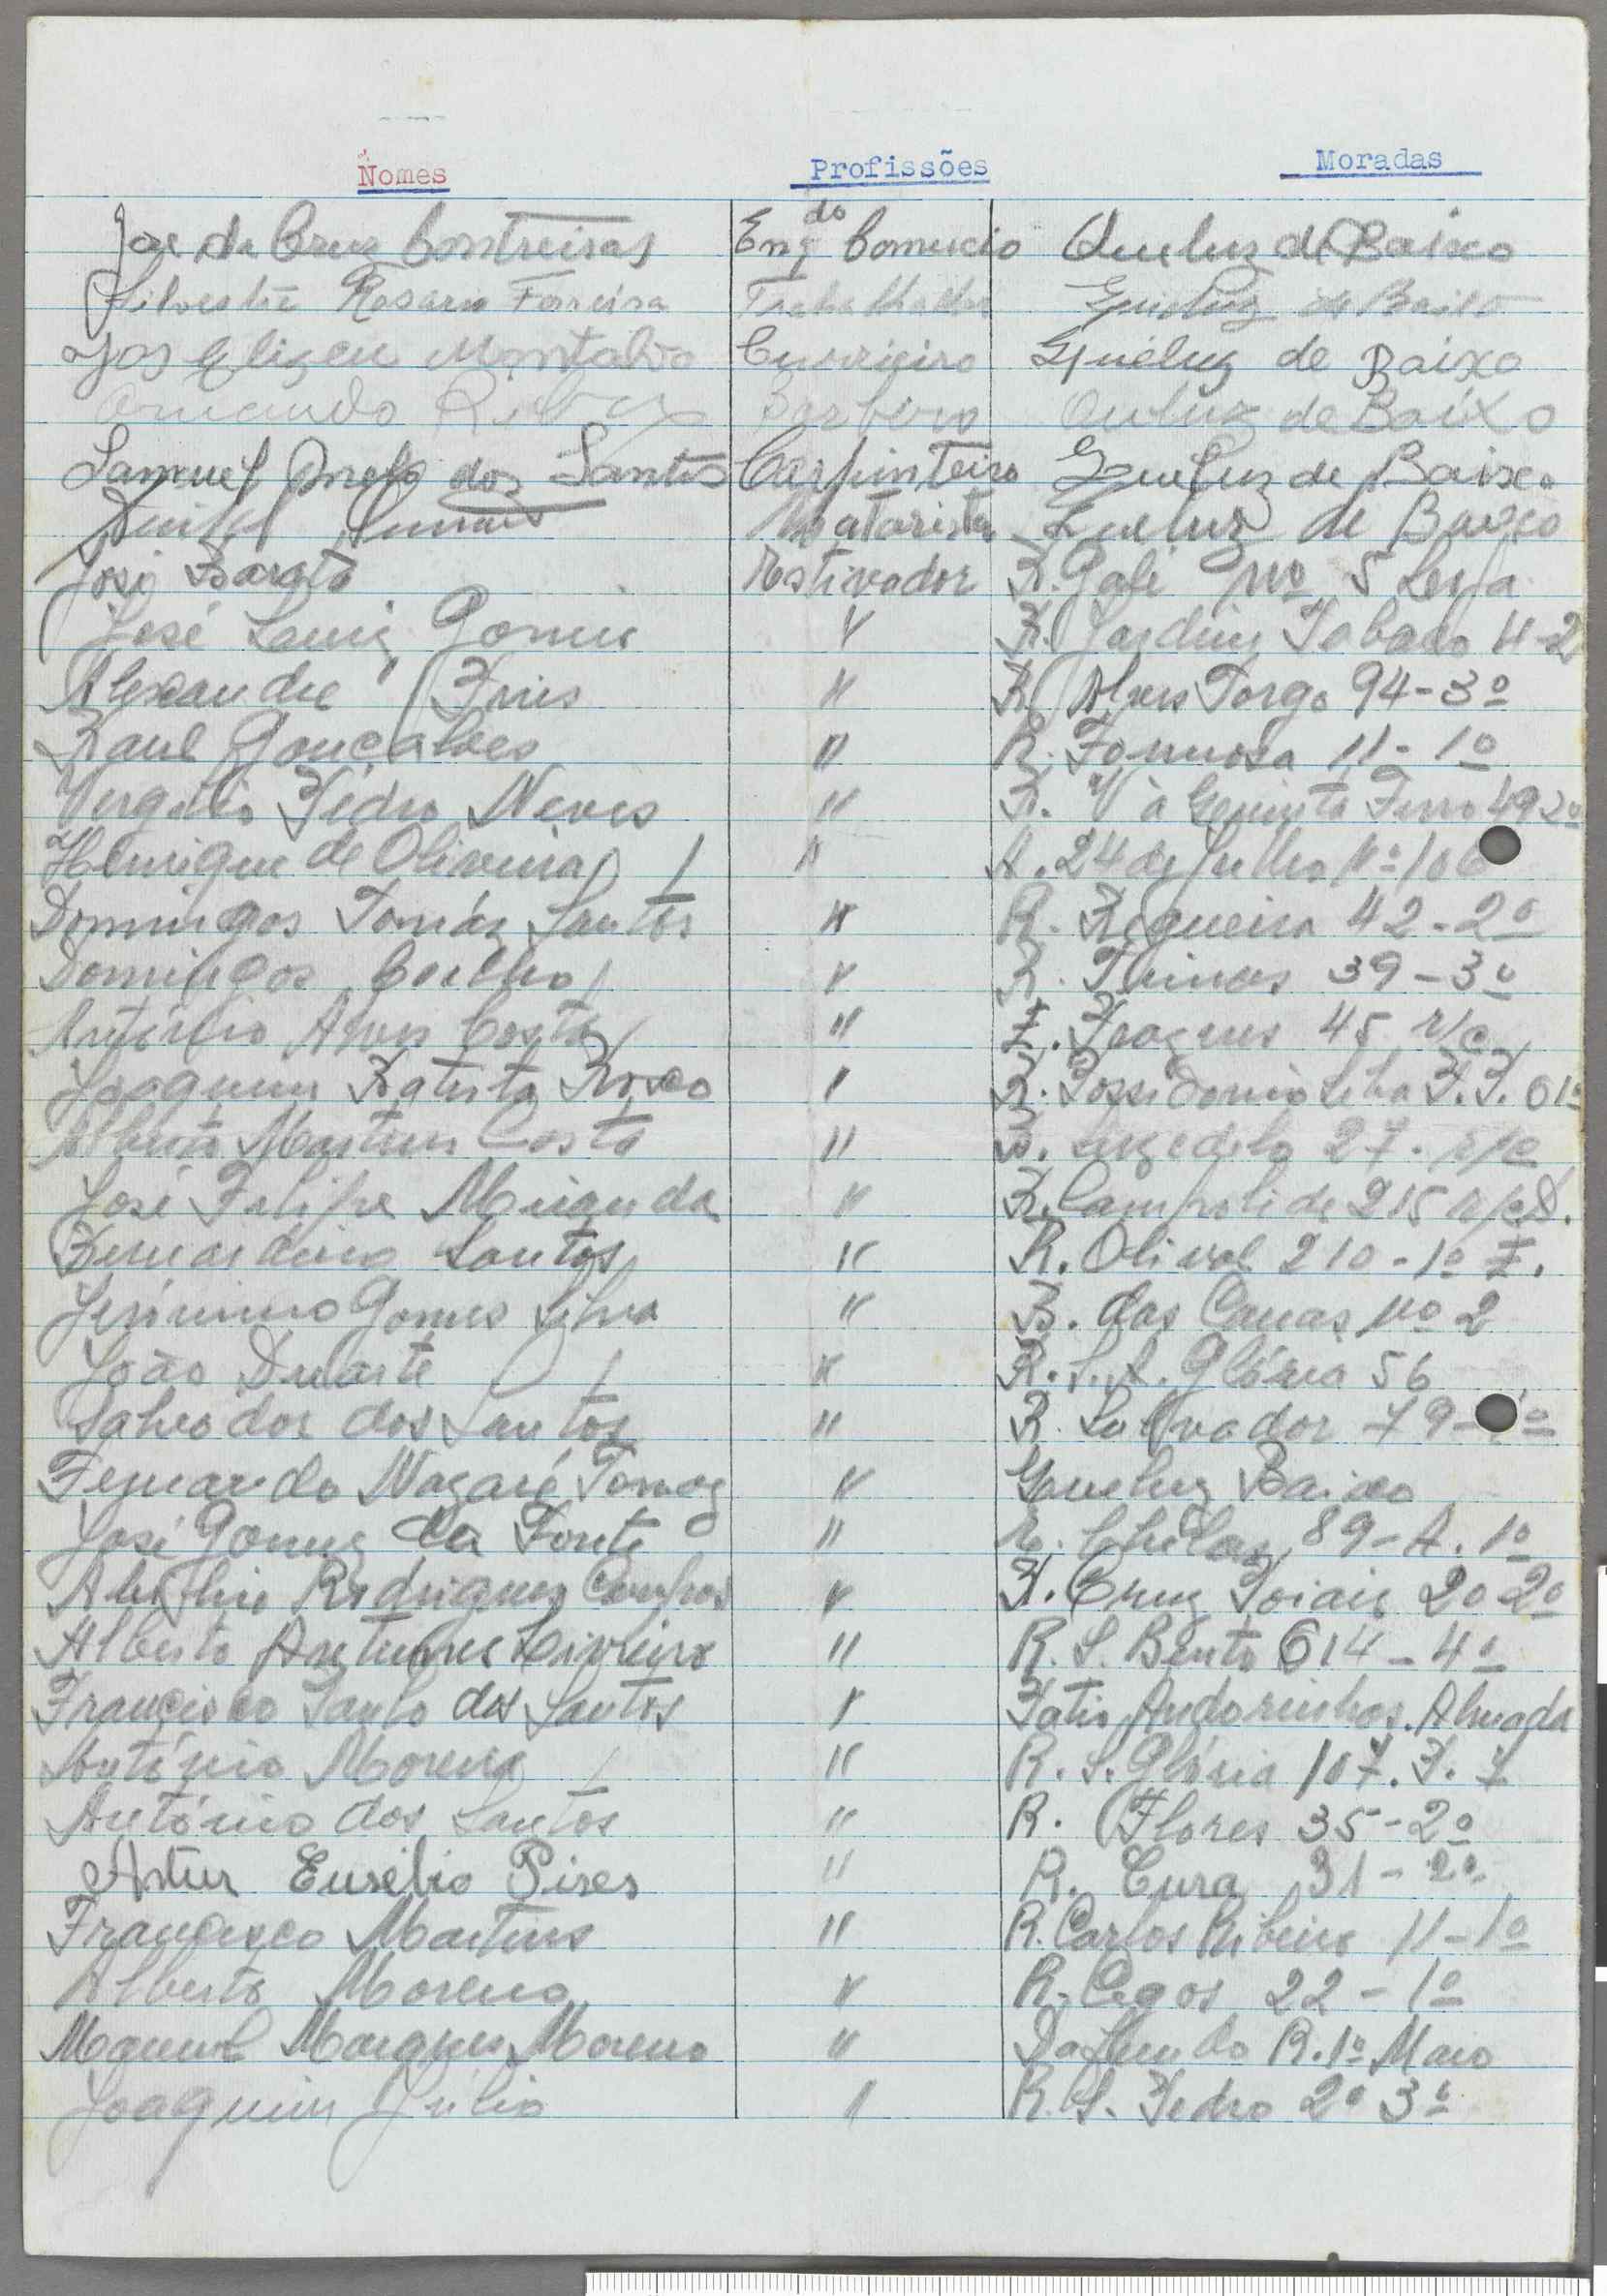 Nomes Profissões Moradas
José da Cruz Contreiras Eng do Comercio Queluz de Baixo
Silvestre Rosario Ferreira Trabalhador Queluz de Baixo
José Elizeu Mantalvo Curriciro Queluz de Baixo
Armando Barbeiro Queluz de Baixo
Samuel dos Santos Carpinteiro Queluz de Baixo
Motorista Queluz de Baixo
José Barata Estivador R. Galé Nº 5 Loja
José Luiz Gomes " R. Jardim Tabaco 4-2
Alexandre Pires " R. Alves Torgo 94-3º
Raul Gonçalves " R. Formosa 11-1º
Vergilio Pedro Neves " R. V à Quinta Ferro 49 2º
Henrique de Oliveira " A. 24 de Julho Nº 106
Domingos Tomáz Santos " R. Regueira 42-2º
Domingos Coelho " R. Trinas 39-3º
António Alves Costa " E. 45 r/c
Joaquim Batista Roxo " R. Possidonio Silva P. P. 61º
Alberto Martins Costa " B. 27. r/c
José Filipe Miranda " R. Campolide 215 r/c D.
Bernardino Santos " R. Olival 210-1º E.
Jerónimo Gomes Silva " B. das Canas nº 2
João Duarte " R. S. A. Glória 56
Salvador dos Santos " R. Salvador 79-
Fernando Nazaré Tomaz " Queluz Baixo
José Gomes da Fonte " R. Chelas 89-A. 1º
Rodrigues Campos " T. Cruz Soiais 20 2º
Alberto Antunes " R. S. Bento 614-4º
Francisco Paulo dos Santos " Patio Andorinhas. Almada
António Moreira " R. S. Glória 107. P. 7
António dos Santos " R. Flores 35-2º
Artur Eusébio Pires " R. Cura 31-2º
Francisco Martins " R. Carlos Ribeiro 11-1º
Alberto Moreno " R. Cegos 22-1º
Manuel Marques Moreno " Dafundo R. 1º Maio
Joaquim Júlio " R. S. Pedro 2º 3º